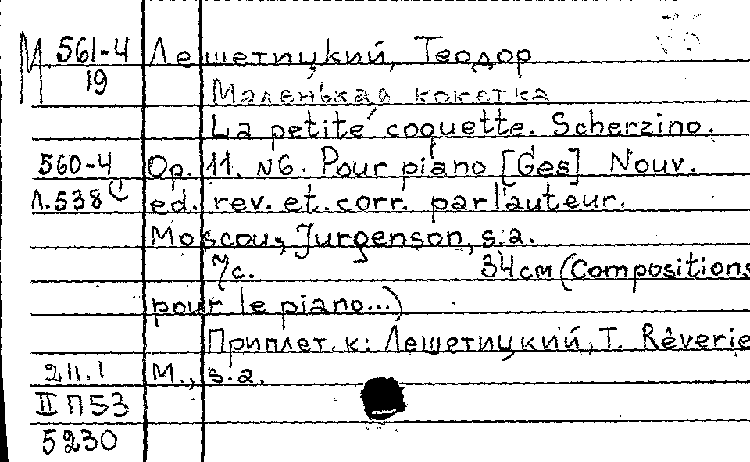 М 561-4 Лешетицкий, Теодор
19 Маленькая кокетка
La petite coquette. Scherzino.
560-4 Op. 11. N6. Pour piano [Ges] Nouv.
Л.538 ed. rev. et. corr. par l'auteur.
Moscou, Jurgenson, s.a.
7с. 34см (Compositions
pour le piano...)
Приплет. к: Лешетицкий, Т. Rêverie
211.1 М., s.a.
II П53
5230